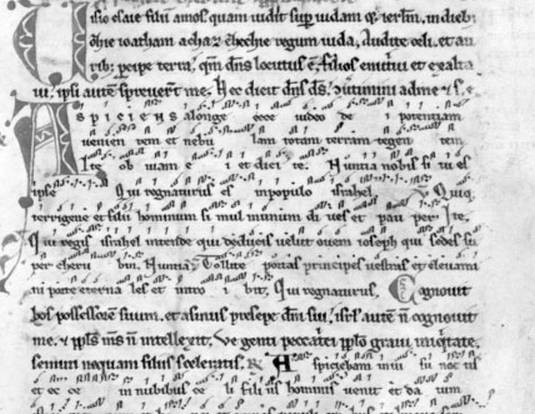 Visio esaie filii amos quam uidit sup iudam & ierlm, in dieb;
ohie ioatham achaz ezechie regum iuda, Audite celi. et au
rib; pcipe terra, qm dns locutus e, filios enutriui et exalta
ui. ipsi aute spreuert me. Hec dicit dns ds, Cutimini ad me & s. e
Aspiciens a longe ecce uideo dei potentiam
uenien tem et nebu lam totam terram tegen tem
Ite ob uiam e i et dici te. Nuntia nobis si tu es
ipse Qui regnaturus es in populo israhel Quiq;
terrigene et filii hominum si mul in unum di ues et pau per Ite,
Qui regis israhel intende qui deducis uelut ouem ioseph qui sedes su
per cheru bin, Nuntia, Tollite portas principes uestras et eleuami
ni porte eternales et intro i bit, Qui regnaturus, Cognouit
bos possessore suum. et asinus presepe dni sui, isrl aute n cognouit
me. & ppls ms n intellexit, Ve genti peccatrici pplo graui iniqitate,
semini nequam filiis sceleratis, R Aspiciebam in uisu noctis
et ec ce in nubibus ce li filius hominis uenit et da tum